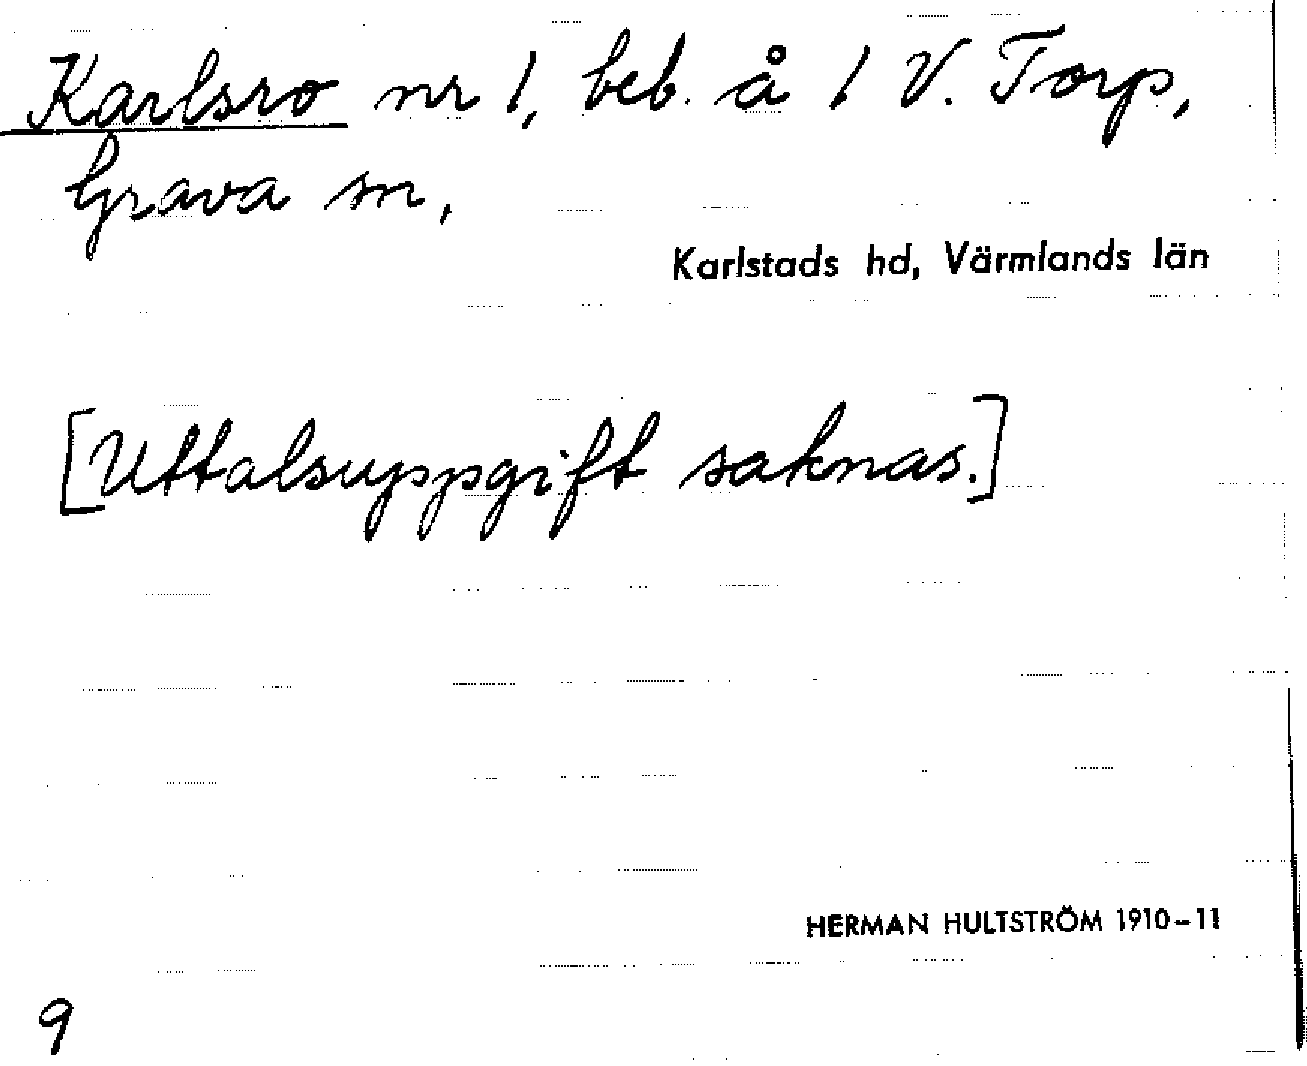 Karlsro nr 1, beb. å 1 V. Torp,
Grava sn,
Karlstads hd, Värmlands län
[Uttalsuppgift saknas.]
HERMAN HULTSTRÖM 1910-11
9